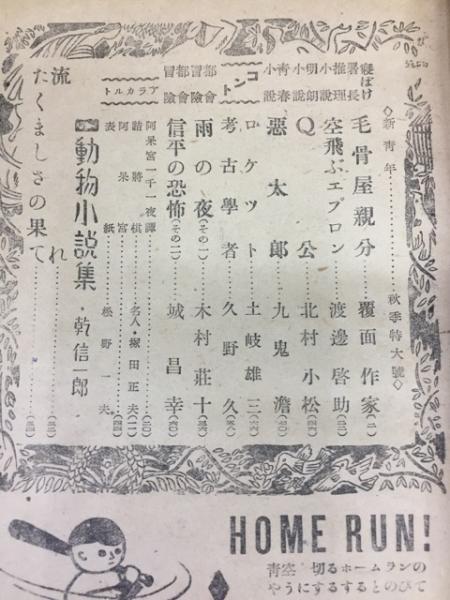 ◇新青年………秋季特大號◇
寝ぼけ署長 毛骨屋親分 覆面作家(二)
推理小説 空飛ぶエプロン 渡邊啓助
明朗小説 Q公 北村小松
青春小説 惡太郎 九鬼澹
コント
ロケット 土岐雄三
考古學者 久野久
都會冒險 雨の夜(その一) 木村莊十
都會冒險 信平の恐怖(その二) 城昌幸
アラカルト
阿呆宮一千一夜譚
詰將棋 名人・塚田正夫
阿呆宮
表紙 松野一夫
動物小説集・乾信一郎
流れ
たくましさの果て
HOME RUN!
青空 切るホームランの
やうにするするとのびて